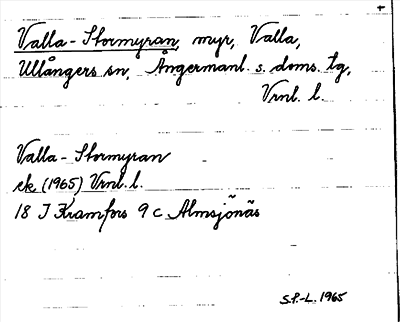 Valla-Stormyran, myr, Valla,
Ullångers sn, Ångermanl. s. doms. tg,
Vrnl. l.
Valla-Stormyran
ek (1965) Vrnl. l.
18 J Kramfors 9 c Almsjönäs
S.P.-L. 1965